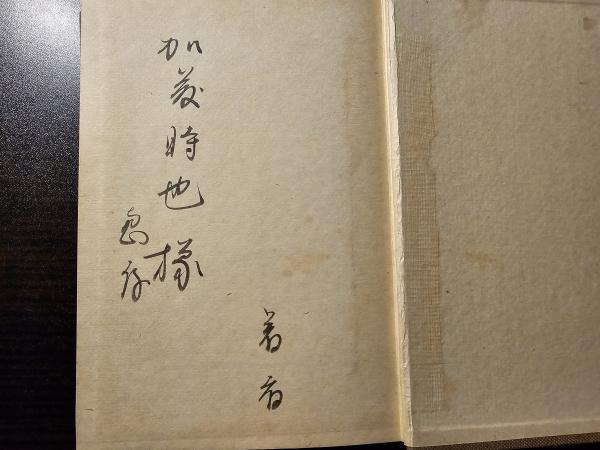 著者
加藤時也様
恵存